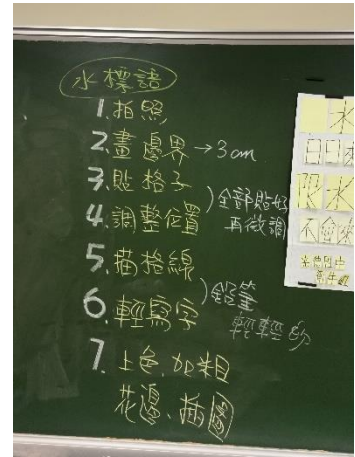 水標語
1. 拍照
2. 畫邊界→3cm
3. 貼格子
4. 調整位置
)全部貼好
再微調
5. 描格線
6. 輕寫字
)鉛筆
輕輕的
7. 上色、加粗
花邊、插圖
水
日日
限水
不會來